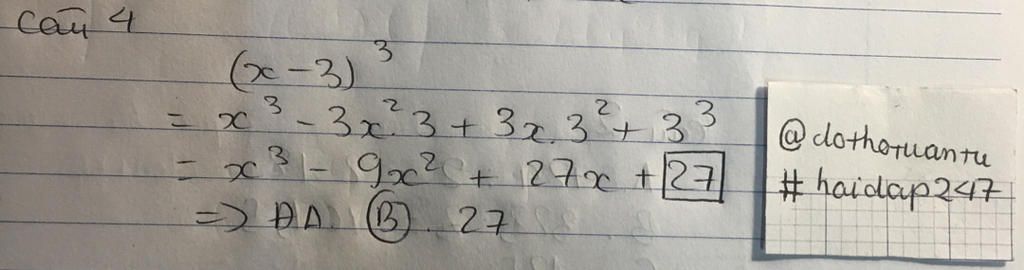 Câu 4
(x - 3)³
= x³ - 3x².3 + 3x.3² + 3³
= x³ - 9x² + 27x + 27
=> ĐA. B. 27
@dothotuantu
#haidap247